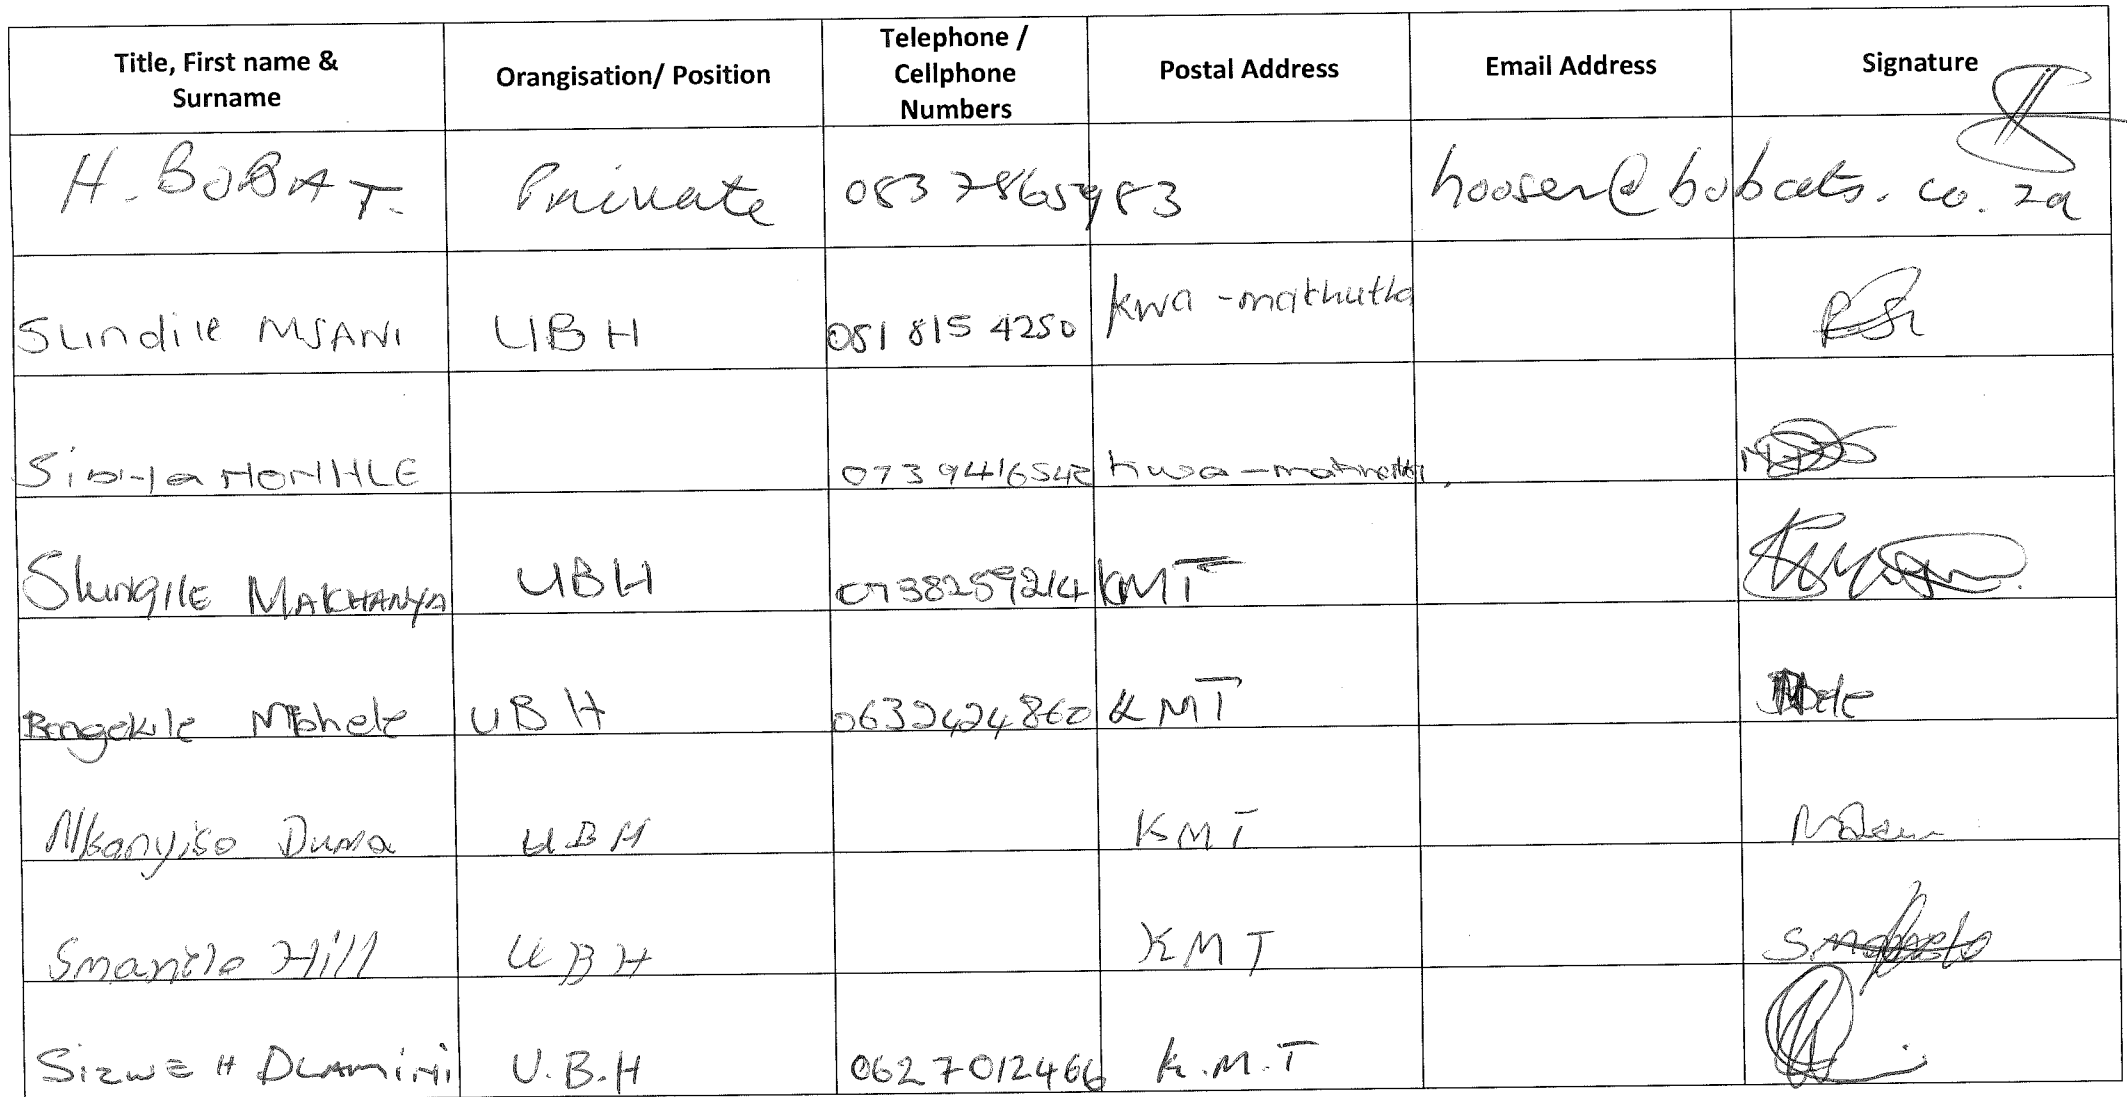 Title, First name & Surname Orangisation/ Position Telephone / Cellphone Numbers Postal Address Email Address Signature
H. BOBAT. Private 083 7865983 hooser@bobcats.co.za
Slindile MSANI UBH 081 815 4250 kwa-mathutha
HONHLE 0739416542 kwa-
Slungile MAKHANYA UBH 0738259214 KMT
Bongekile Mbhele UBH 0632424860 KMT
Nkanyiso Duma UBH KMT
Hill UBH KMT
Sizwe H DLAMINI U.B.H 0627012466 K.M.T